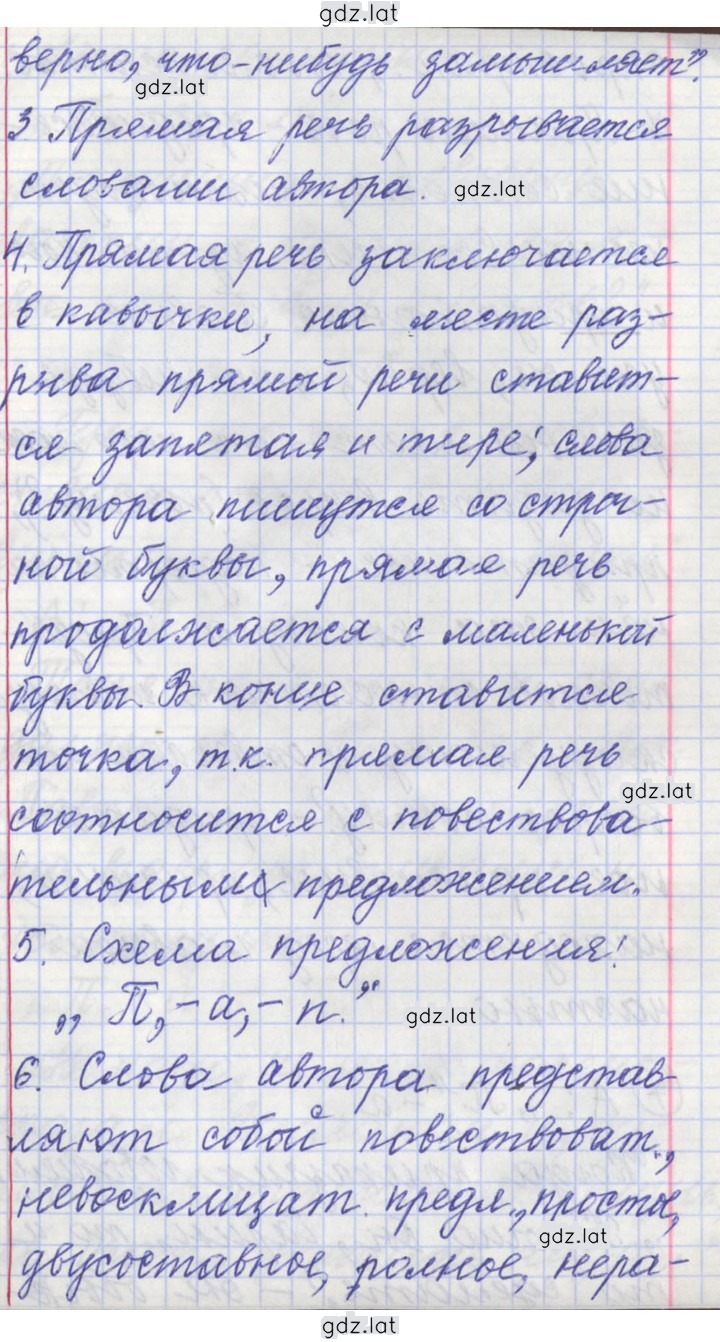 gdz.lat
верно, что-нибудь замышляет".
gdz.lat
3 Прямая речь разрывается
словами автора.
gdz.lat
4. Прямая речь заключается
в кавычки, на месте раз-
рыва прямой речи ставит-
ся запятая и тире; слова
автора пишутся со строч-
ной буквы, прямая речь
продолжается с маленькой
буквы. В конце ставится
точка, т.к. прямая речь
gdz.lat
соотносится с повествова-
тельным предложением.
5. Схема предложения:
„П, – а, – п."
gdz.lat
6. Слова автора представ-
ляют собой повествоват.,
невосклицат. предл., простое,
gdz.lat
двусоставное, полное, нера-
gdz.lat